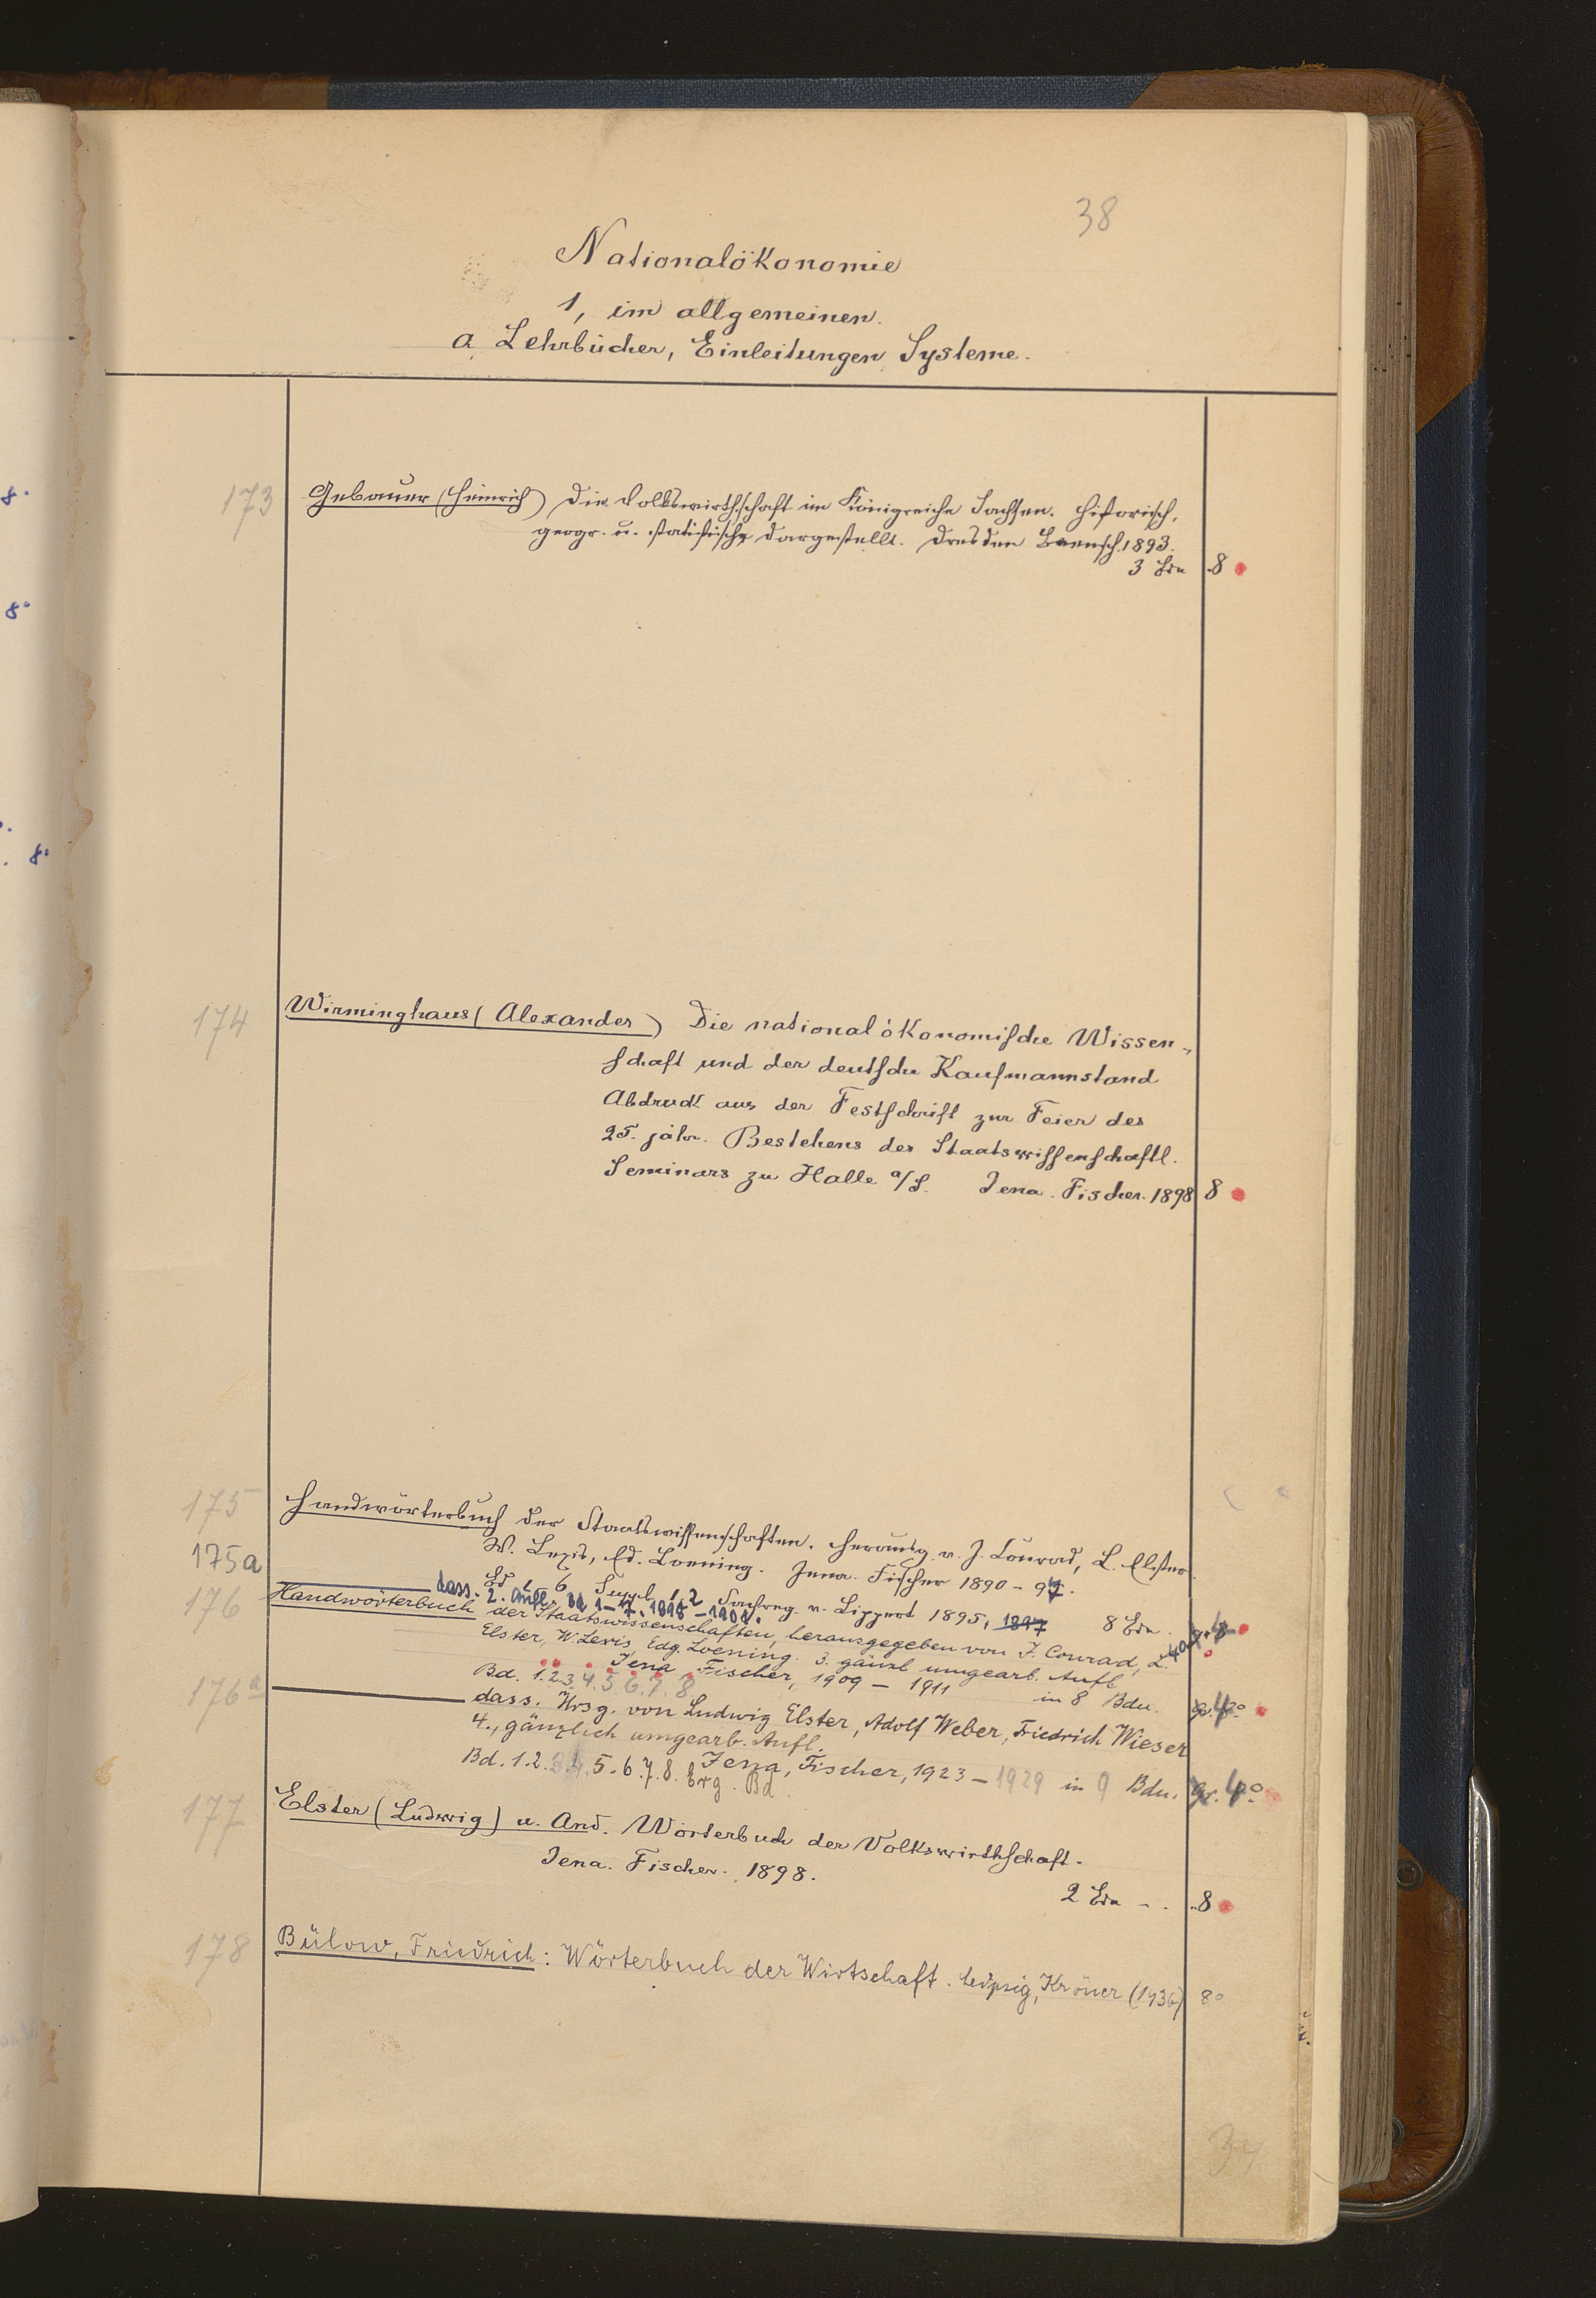 38
Nationalökonomie
1, im allgemeinen.
a, Lehrbücher, Einleitungen, Systeme.
173 Gebauer (Heinrich) Die Volkswirthschaft im Königreiche Sachsen. Historisch,
geogr. u. statistisch dargestellt. Dresden Baensch. 1893.
3 Bde 8
174 Wirminghaus (Alexander) Die nationalökonomische Wissen-
schaft und der deutsche Kaufmannstand
Abdruck aus der Festschrift zur Feier des
25. jähr. Bestehens des Staatswissenschaftl.
Seminars zu Halle a/S. Jena. Fischer. 1898 8
175 Handwörterbuch der Staatswissenschaften. Herausg. v. J. Conrad, L. Elster
W. Lexis, Ed. Loening. Jena. Fischer 1890-97.
Bd 1-6 Suppl. 1.2 Sachreg. v. Lippert 1895, 1897 8 Bde.
175a dass. 2. Aufl. Bd 1-7. 1898-1901.
176 Handwörterbuch der Staatswissenschaften, herausgegeben von J. Conrad, L.
Elster, W. Lexis, Edg. Loening. 3. gänzl umgearb. Aufl
Jena, Fischer, 1909 - 1911 in 8 Bdn. gr. 4°
Bd. 1.2.3.4.5.6.7.8
176a dass. Hrsg. von Ludwig Elster, Adolf Weber, Friedrich Wieser
4., gänzlich umgearb. Aufl.
Jena, Fischer, 1923-1929 in 9 Bdn. gr. 4°
Bd. 1.2.3.4.5.6.7.8. Erg. Bd.
177 Elster (Ludwig) u. And. Wörterbuch der Volkswirthschaft.
Jena. Fischer. 1898.
2 Bde - . 8
178 Bülow, Friedrich: Wörterbuch der Wirtschaft. Leipzig, Kröner (1936) 8°
8.
8°
8°